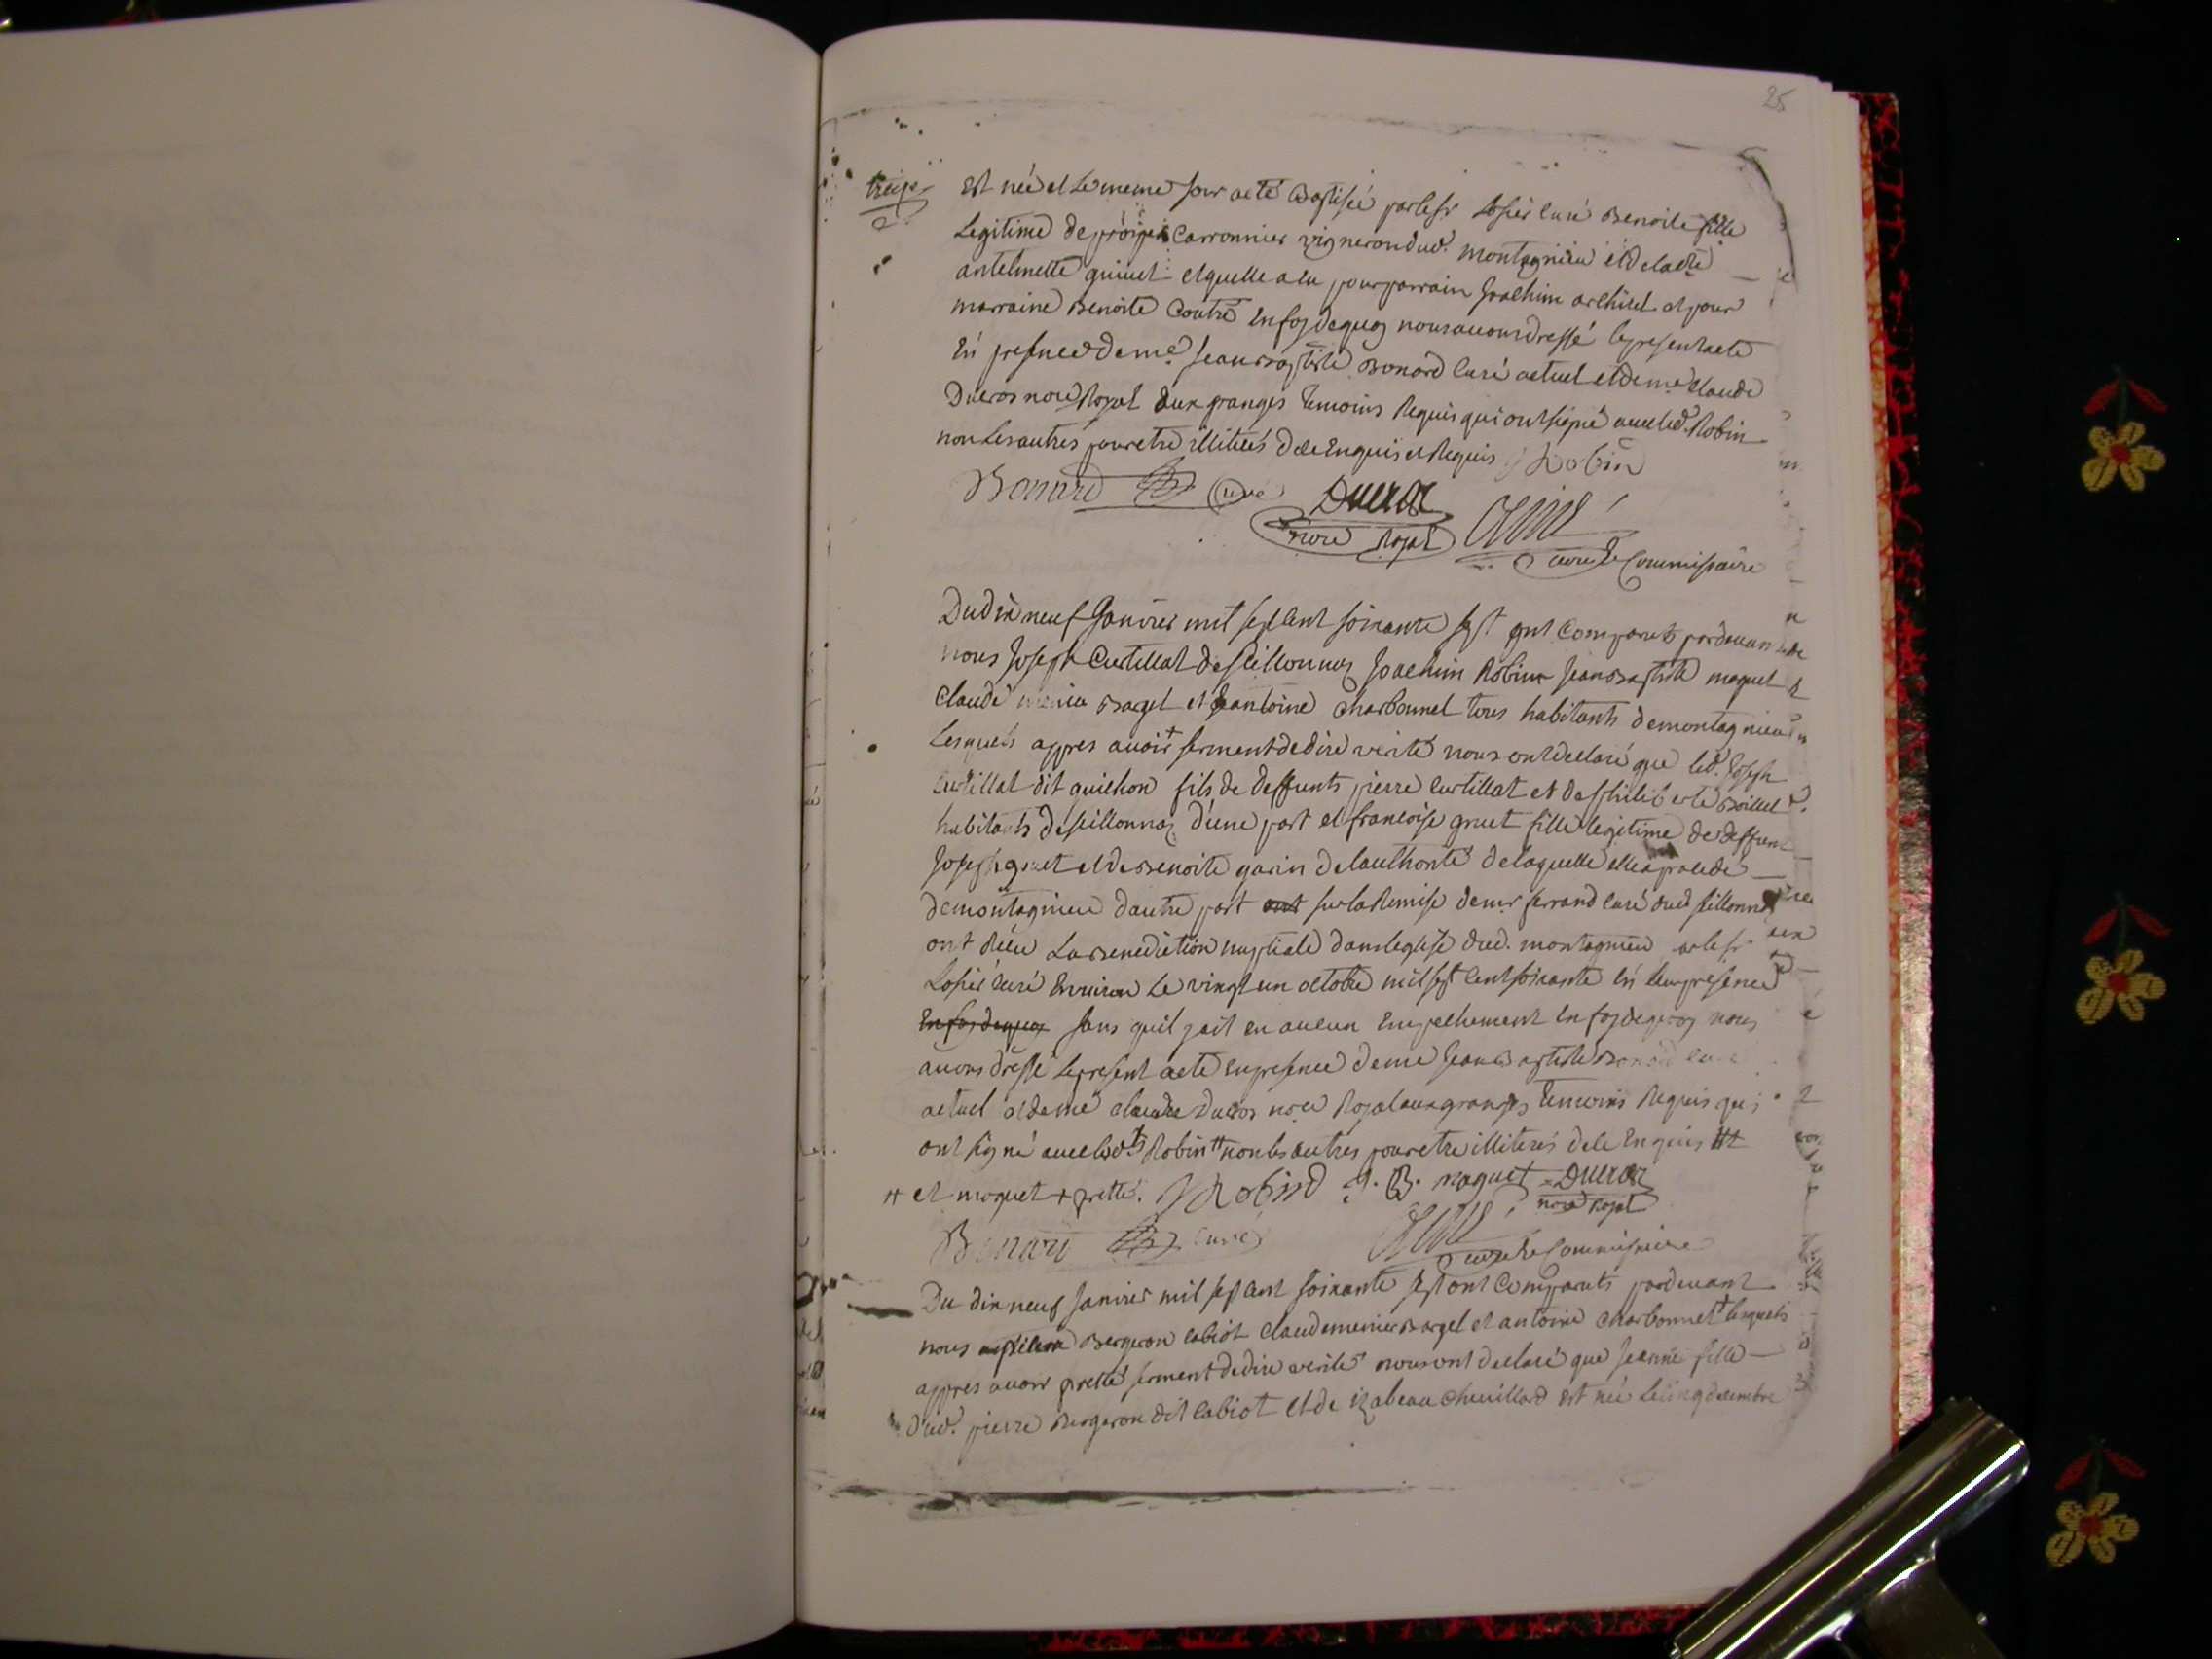 25
treize
Est née et Le meme jour a eté Baptisée par le sr Losier curé Benoite fille
Legitime de prosper Carronnier vigneron dud. montagnieu et de la dte
antelmette guinet et quelle a eu pour parrain Joachim archirel et pour
marraine Benoite Coutre En foy de quoy nous avons dressé le present acte
En presence de me Jean Baptiste Bonard curé actuel et de me Claude
Ducros nore Royal aux granges temoins Requis qui ont signé avec led. Robin
non Les autres pour etre illiterés de ce Enquis et Requis J Robin
Bonard curé Ducros
nore Royal
curé Commissaire
Du dix neuf Janvier mil sept cent soixante sept ont Comparuts pardevant
nous Joseph Curtillat de seillonnaz Joachim Robin Jean Baptiste moquet
Claude Bargel et antoine Charbonnel tous habitants de montagnieu
Lesquels appres avoir + serment de dire verité nous ont declaré que led. Joseph
Curtillat dit guichon fils de deffunts pierre Curtillat et de philiberte Boillet
habitants de seillonnaz d'une part et francoise gruet fille legitime de deffunt
Joseph gruet et de Benoite garin de lauthorité de laquelle elle a procedé
de montagnieu dautre part ont sur la Remise de mr ferrand curé dud seillonnaz
ont Reçu La Benediction nuptiale dans leglise dud. montagnieu par le sr
Losier curé Environ Le vingt un octobre mil sept cent soixante En leur presence
En foy de quoy sans quil y ait eu aucun Empechement En foy de quoy nous
avons dressé Le present acte en presence de me Jean Baptiste Bonard curé
actuel et de me claude Ducros nore Royal aux granges temoins Requis qui
ont signé avec lesdts Robin # non les autres pour etre illiterés de ce Enquis
# et moquet + pretté. J Robin J. B. moquet Ducros
nore Royal
Bonard curé
curé Commissaire
Du dix neuf Janvier mil sept cent soixante sept ont Comparuts pardevant
nous Bergeron cabiot claude meinier Bargel et antoine charbonnel + lesquels
appres avoir pretté serment de dire verité nous ont declaré que Jeanne fille
dud. pierre Bergeron dit cabiot et de izabeau chevillard est née Le cinq decembre